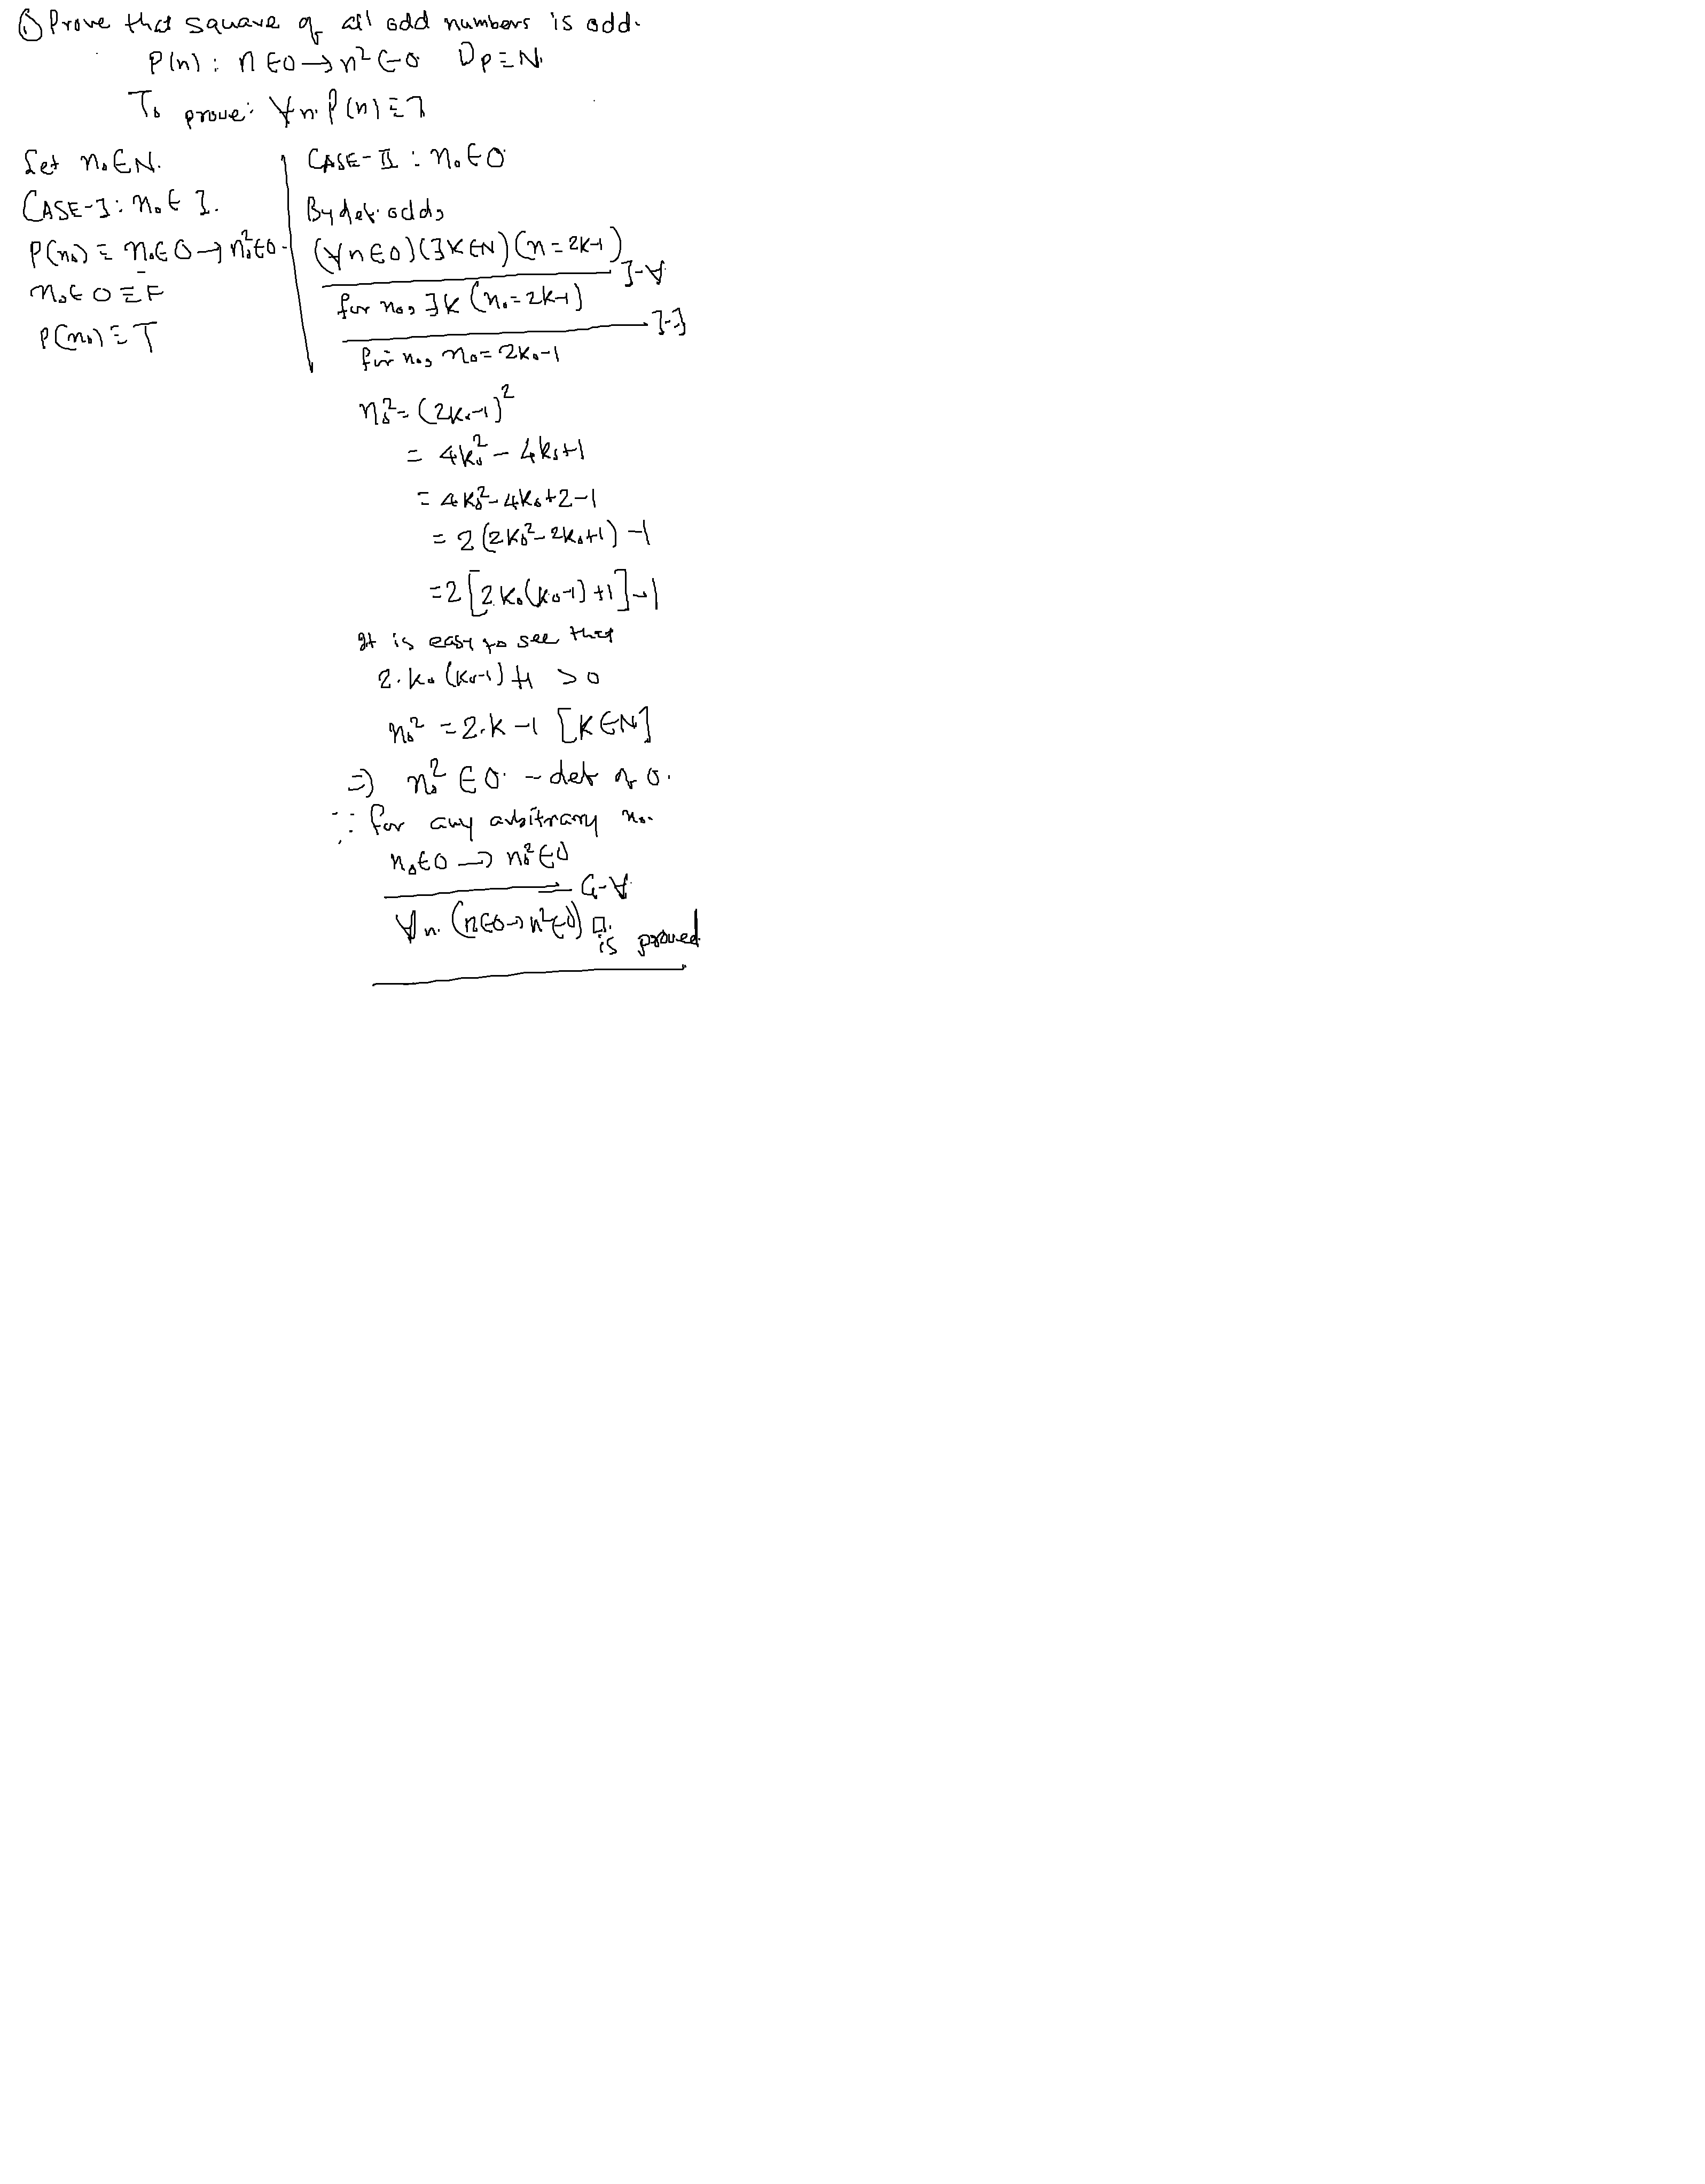 ① Prove that square of all odd numbers is odd.
P(n): n∈O→n²∈O Dp≡N.
To prove: ∀n.P(n)≡T
Let n₀∈N.
CASE-I: n₀∈ I.
P(n₀) ≡ n₀∈O→n₀²∈O.
n₀∈O≡F
P(n₀)≡T
CASE-II : n₀∈O
By def. odd,
(∀n∈O)(∃k∈N)(n=2k-1)
I-∀
for n₀, ∃k (n₀=2k-1)
I-∃
for n₀, n₀=2k₀-1
n₀²=(2k₀-1)²
= 4k₀²-4k₀+1
= 4k₀²-4k₀+2-1
= 2(2k₀²-2k₀+1)-1
=2[2.k₀(k₀-1)+1]-1
It is easy to see that
2.k₀(k₀-1)+1 >0
n₀² =2.k-1 [k∈N]
⇒ n₀²∈O. - def of O.
∵ for any arbitrary n₀.
n₀∈O→n₀²∈O
G-∀.
∀n.(n∈O→n²∈O) □.
is proved